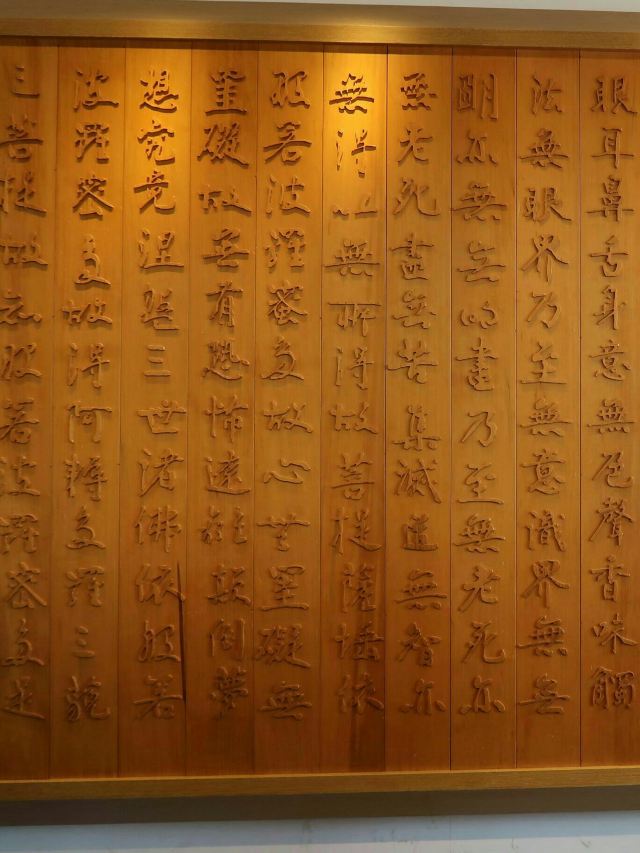 眼耳鼻舌身意無色聲香味觸
法無眼界乃至無意識界無無
明亦無無明盡乃至無老死亦
無老死盡無苦集滅道無智亦
無得以無所得故菩提薩埵依
般若波羅蜜多故心無罣礙無
罣礙故無有恐怖遠離顛倒夢
想究竟涅槃三世諸佛依般若
波羅蜜多故得阿耨多羅三藐
三菩提故知般若波羅蜜多是